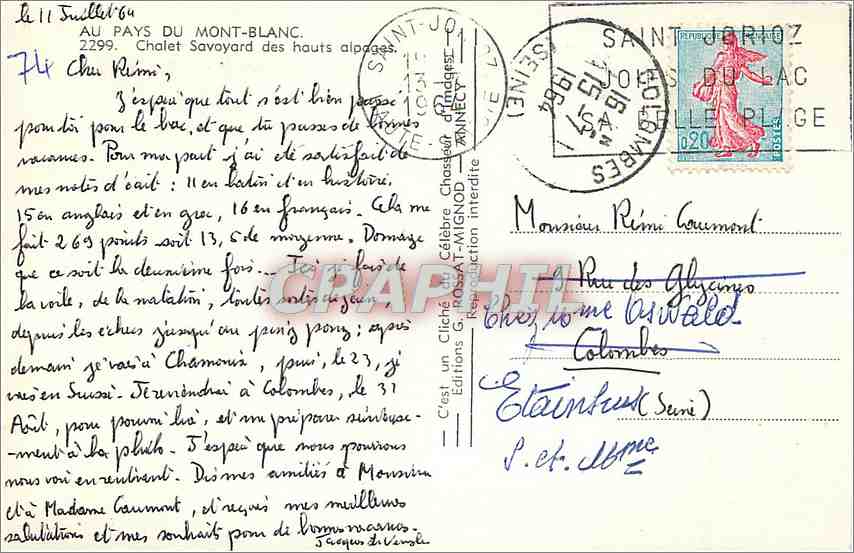 le 11 Juillet 64
AU PAYS DU MONT-BLANC.
2299. Chalet Savoyard des hauts alpages.
74
Cher Rémi,
J'espère que tout s'est bien passé
pour toi pour le bac, et que tu passes de bonnes
vacances. Pour ma part j'ai été satisfait de
mes notes d'écrit : 11 en latin et en histoire.
15 en anglais et en grec, 16 en français. Cela me
fait 269 points soit 13,5 de moyenne. Domage
que ce soit la deuxième fois... Ici je fais de
la voile, de la natation, toutes sortes de jeux,
depuis les échecs jusqu'au ping pong ; après
demain je vais à Chamonix, puis, le 23, je
vais en Suisse. Je reviendrai à Colombes, le 31
Août, pour pouvoir lire, et me préparer sérieuse-
-ment à la philo. J'espère que nous pourrons
nous voir en rentrant. Dis mes amitiés à Monsieur
et à Madame Caumont, et reçois mes meilleures
salutations et mes souhaits pour de bonnes vacances.
Jacques
C'est un Cliché du Célèbre Chasseur d'Images
Editions G. ROSSAT-MIGNOD - ANNECY
Reproduction interdite
SAINT-JORIOZ
HTE-
SAINT JORIOZ
JOIES DU LAC
BELLE PLAGE
COLOMBES
16 H
15 -7
1964
(SEINE)
REPUBLIQUE FRANÇAISE
0,20
POSTES
CPAPHIL
Monsieur Rémi Caumont
9 Rue des Glycines
Chez Mme Oswald
Colombes
Etainhus (Seine)
S. et. Mme